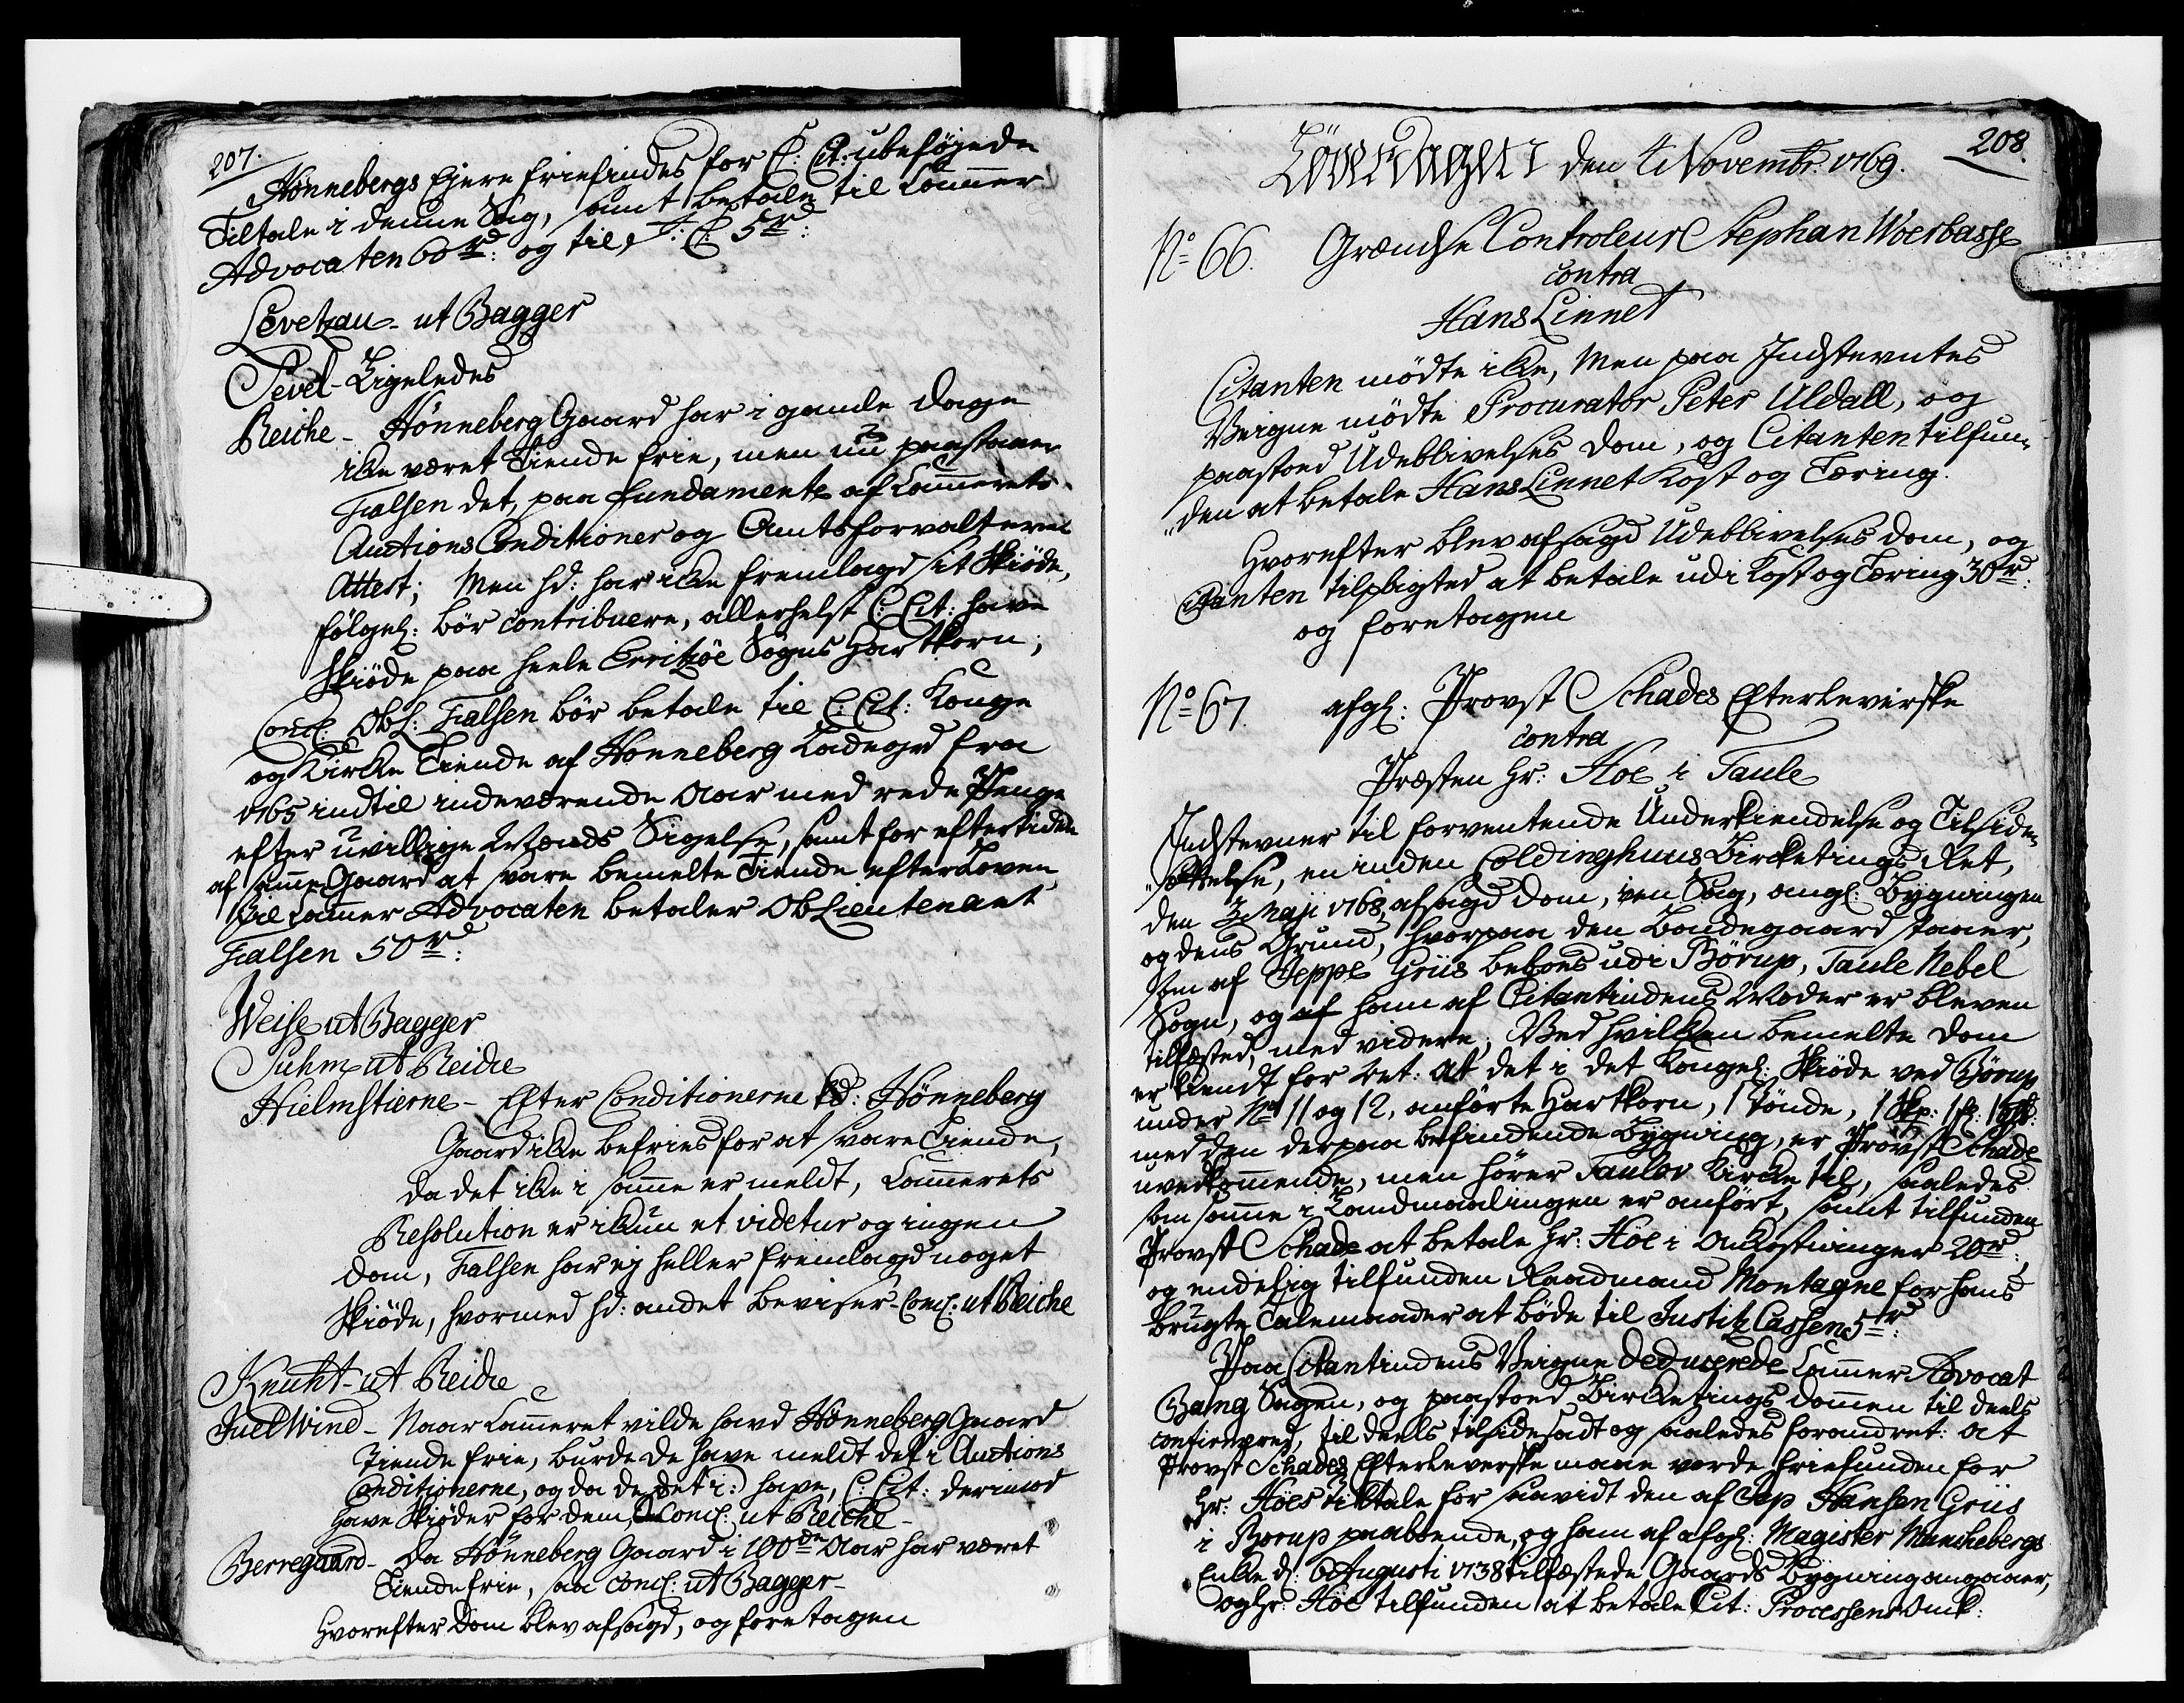 207.
Hønnebergs Ejere friefindes for C: Cit: ubeføjede
Tiltale i denne Sag, samt betale til Cammer
Advocaten 60 rd: og til J: C: 5 rd:
Levetzau - ut Bagger
Sevel - Ligeledes
Reiche - Hønneberg Gaard har i gamle Dage
icke været Tiende frie, men nu paastaaer
Falsen det, paa fundamente af Cammerets
Auctions Conditioner og Amtsforvalterens
Attest; Men hd: har icke fremlagd sit Skiøde,
følgel: bør contribuere, allerhelst C: Cit: have
Skiøde paa heele Erritzøe Sogns Hartkorn;
Concl: ObL: Falsen bør betale til C: Cit: Konge
og Kirke Tiende af Hønneberg Ladegrd fra
1765 indtil indeværende Aar med rede Penge
efter uvillige Mænds Sigelse, samt for eftertiden
af samme Gaard at svare bemelte Tiende efter Loven
Til Cammer Advocaten betaler ObLieutenant
Falsen 50 rd:
Weise ut Bagger
Suhm ut Reiche
Hielmstierne - Efter Conditionerne kd: Hønneberg
Gaard icke befries for at svare Tiende,
da det icke i samme er meldt, Cammerets
Resolution er ickun et videtur og ingen
Dom, Falsen har ej heller fremlagd noget
Skiøde, hvormed hd: andet beviser - Concl: ut Reiche
Knuht - ut Reiche
Juel Wind - Naar Cammeret vilde havd Hønneberg Gaard
Tiende frie, burde de have meldt det i Auctions
Conditionerne, og da de det i: have, C: Cit: derimod
have Skiøder for dem, Concl: ut Reiche -
Berregaard - Da Hønneberg Gaard i 100de Aar har været
Tiende frie, saa Concl: ut Bagger -
Hvorefter Dom blev afsagd, og foretagen
208.
Løverdagen den 4 Novembr: 1769.
No 66. Grændse Controleur Stephan Woerbasse
contra
Hans Linnet
Citanten mødte icke, Men paa Indstevntes
Veigne mødte Procurator Peter Uldall, og
paastod Udeblivelses Dom, og Citanten tilfun-
"den at betale Hans Linnet Kost og Tæring.
Hvorefter blev afsagd Udeblivelses Dom, og
Citanten tilpligted at betale udi Kost og Tæring 30 rd:
og foretagen
No 67. afgl: Provst Schades Efterleverske
contra
Præsten Hr: Høe i Taule
Indstevner til forventende Underkiendelse og Tilside-
"sættelse, en inden Coldinghuus Bircketings Ret,
den 3 Maji 1768 afsagd Dom, i en Sag, angl: Bygningen
og dens Grund, hvorpaa den Bondegaard staaer,
som af Jeppe Griis beboes udi Børup, Taule Nebel
Sogn, og af ham af Citantindens Moder er bleven
tilfæsted, med videre; Ved hvilken bemelte Dom
er kiendt for Ret: At det i det Kongel: Skiøde ved Børup
under No 11 og 12, anførte Hartkorn, 1 Tønde, 1 Skp: 1 fr: 1 alb:
med den derpaa befindende Bygning, er Provst Schade
uvedkommende, men hører Taulov Kircke til, saaledes
som samme i Landmaalingen er anført, samt tilfunden
Provst Schade at betale Hr: Høe i Omkostninger 20 rd:,
og endelig tilfunden Raadmand Montagne for hans
brugte Talemaader at bøde til Justitz Cassen 5 rd:
Paa Citantindens Veigne deducerede Cammer Advocat
Bang Sagen, og paastod Bircketings Dommen til deels
confirmered, til deels tilsidesadt og saaledes forandret: at
Provst Schades Efterleverske maae vorde friefunden for
Hr: Høes Tiltale for saavidt den af Jep Hansen Griis
i Børup paaboende, og ham af afgl: Magister Munchebergs
Encke d: 6 Augusti 1738 tilfæstede Gaards Bygning angaaer,
og Hr: Høe tilfunden at betale Cit: Processens Omk: